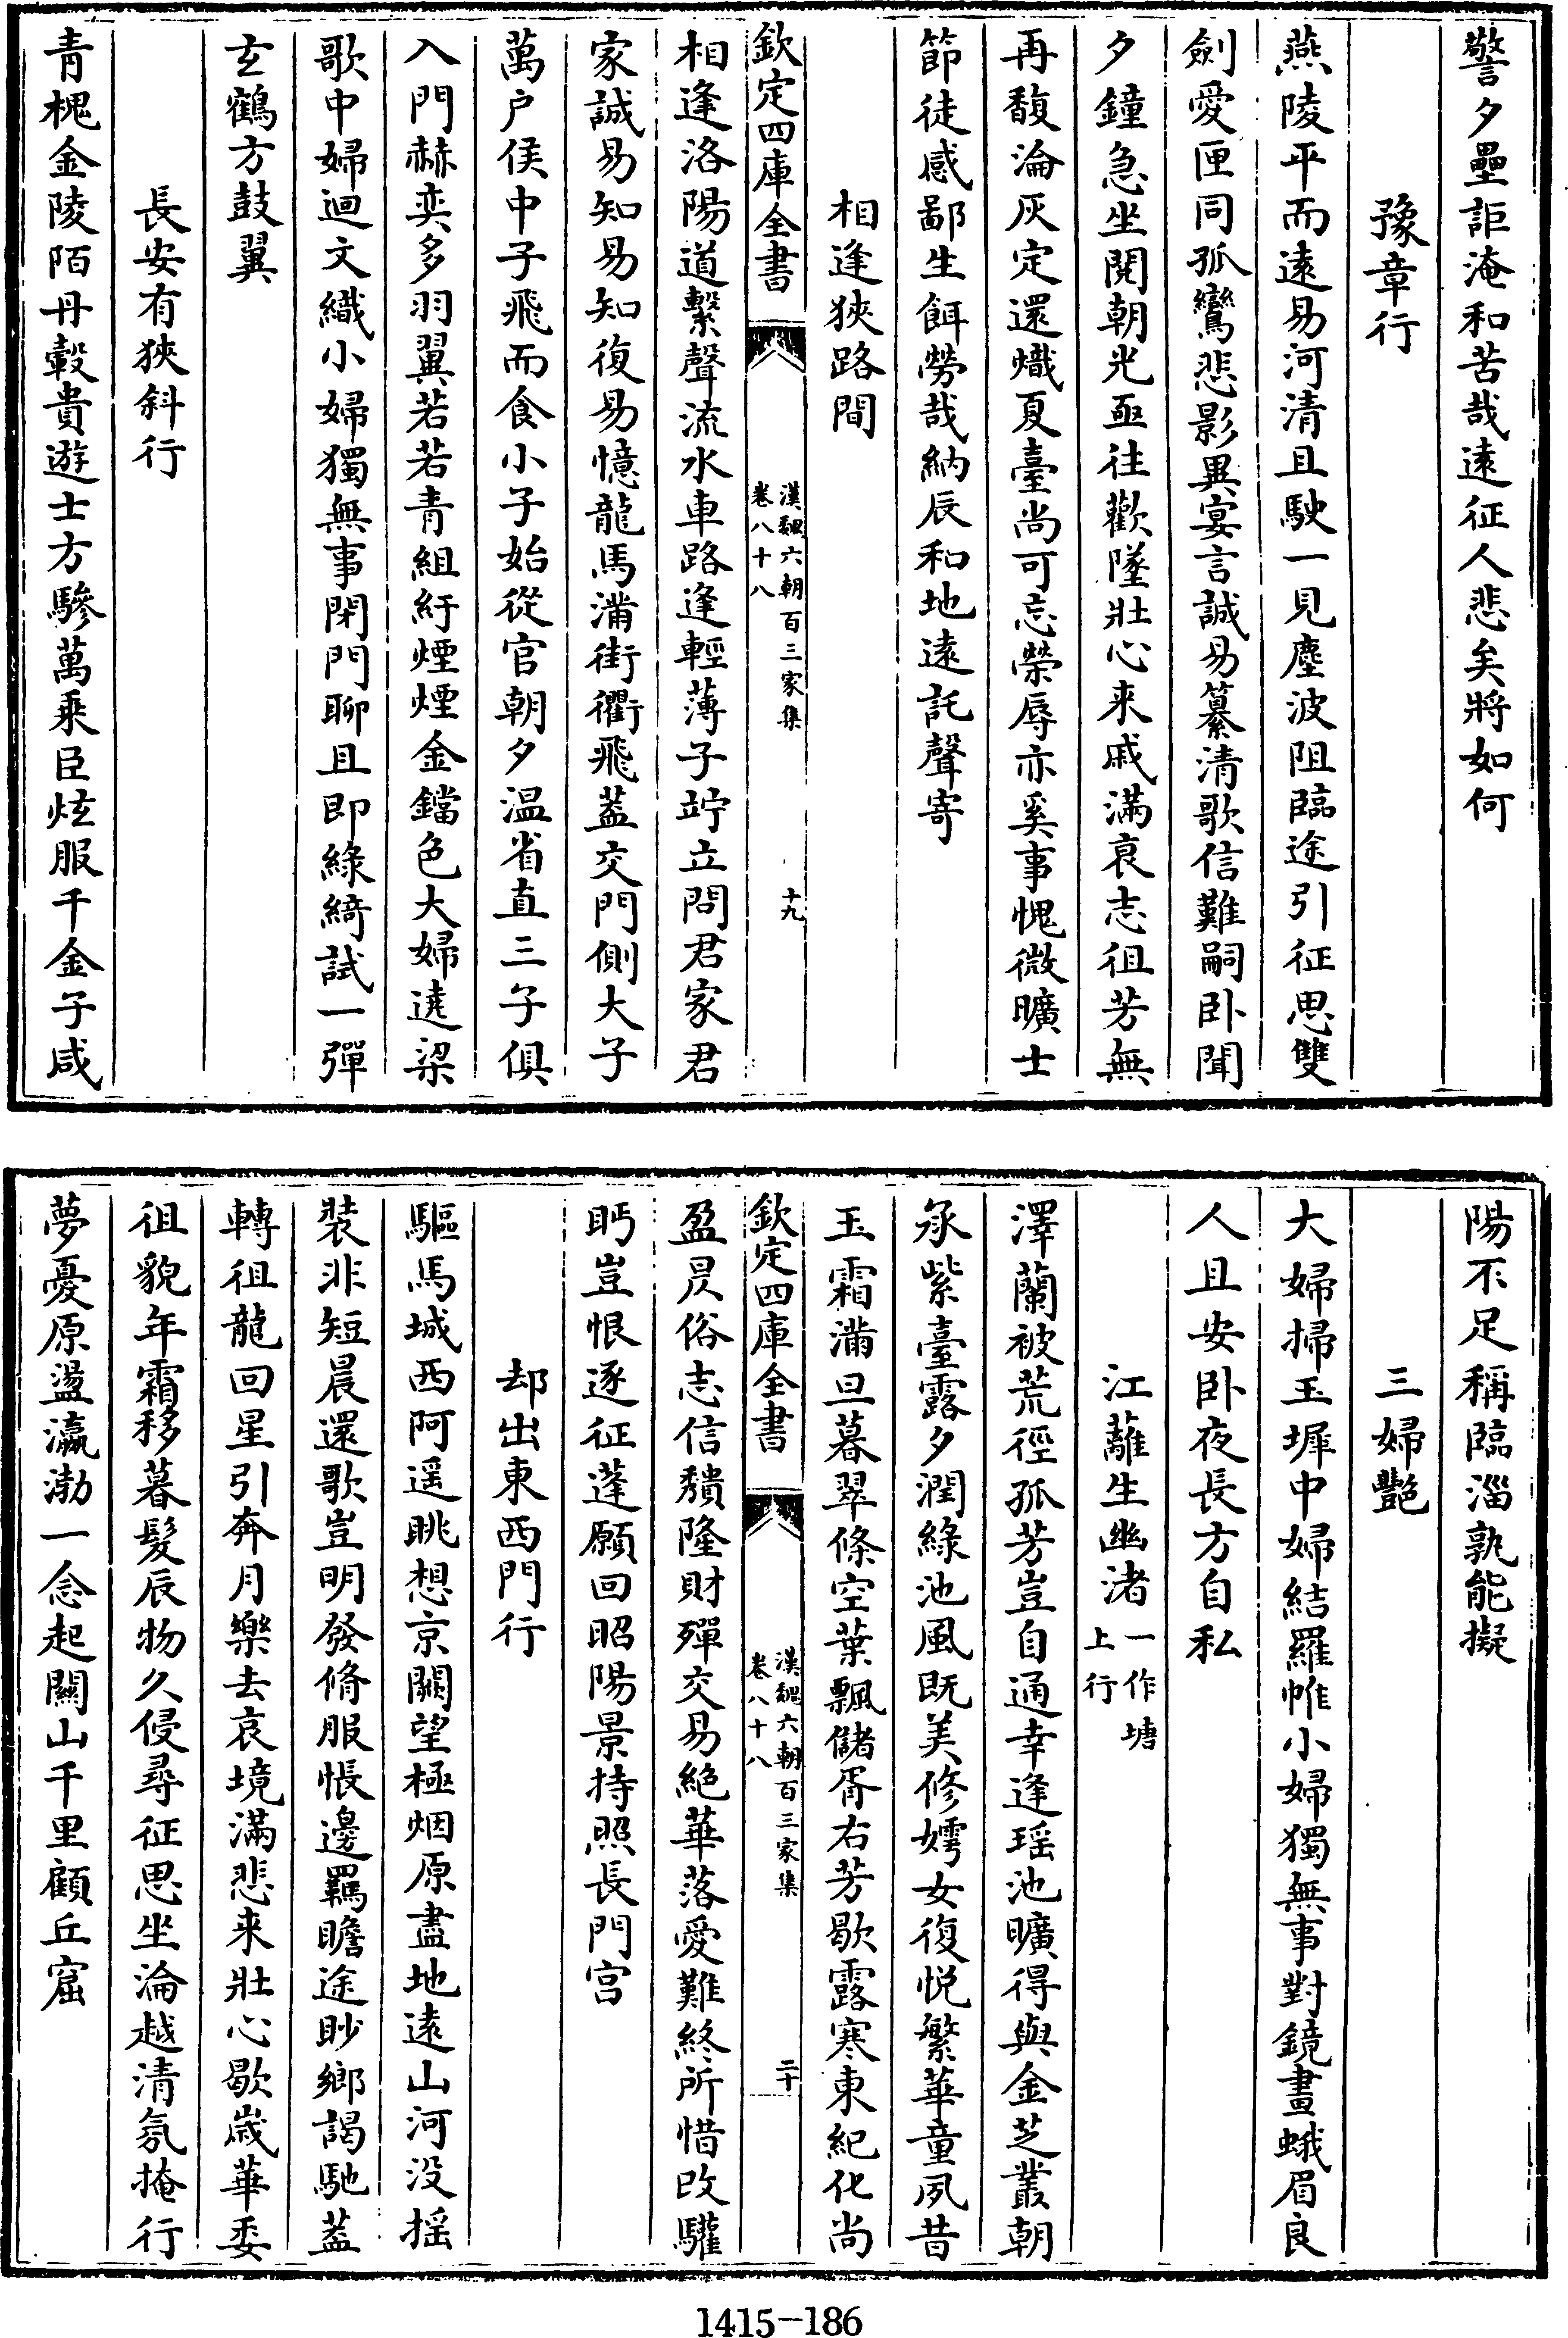 警夕壘詎淹和苦哉遠征人悲矣將如何
豫章行
燕陵平而遠易河清且駛一見塵波阻臨途引征思雙
劍愛匣同孤鸞悲影異宴言誠易纂清歌信難嗣卧聞
夕鐘急坐閱朝光亟往歡墜壯心来戚滿哀志徂芳無
再馥淪灰定還熾夏臺尚可忘榮辱亦奚事愧微曠士
節徒感鄙生餌勞哉納辰和地遠託聲寄
相逢狹路間
欽定四庫全書
漢魏六朝百三家集
卷八十八
十九
相逢洛陽道繫聲流水車路逢輕薄子竚立問君家君
家誠易知易知復易憶龍馬滿街衢飛蓋交門側大子
萬户侯中子飛而食小子始從官朝夕温省直三子俱
入門赫奕多羽翼若若青組紆煙煙金鐺色大婦遶梁
歌中婦迴文織小婦獨無事閉門聊且即綠綺試一彈
玄鶴方鼓翼
長安有狹斜行
青槐金陵陌丹轂貴遊士方驂萬乘臣炫服千金子咸
陽不足稱臨淄孰能擬
三婦艷
大婦掃玉墀中婦結羅帷小婦獨無事對鏡畫蛾眉良
人且安卧夜長方自私
江蘺生幽渚一作塘上行
澤蘭被荒徑孤芳豈自通幸逢瑶池曠得與金芝叢朝
承紫臺露夕潤綠池風既美修嫮女復悦繁華童夙昔
玉霜滿旦暮翠條空葉飄儲胥右芳歇露寒東紀化尚
欽定四庫全書
漢魏六朝百三家集
卷八十八
二十
盈昃俗志信穨隆財殫交易絶華落愛難終所惜改驩
眄豈恨逐征蓬願回昭陽景持照長門宫
却出東西門行
驅馬城西阿遥眺想京闕望極烟原盡地遠山河没揺
裝非短晨還歌豈明發脩服悵邊羈瞻途眇鄉謁馳蓋
轉徂龍回星引奔月樂去哀境滿悲来壯心歇嵗華委
徂貌年霜移暮髮辰物久侵尋征思坐淪越清氛掩行
夢憂原盪瀛渤一念起關山千里顧丘窟
1415-186